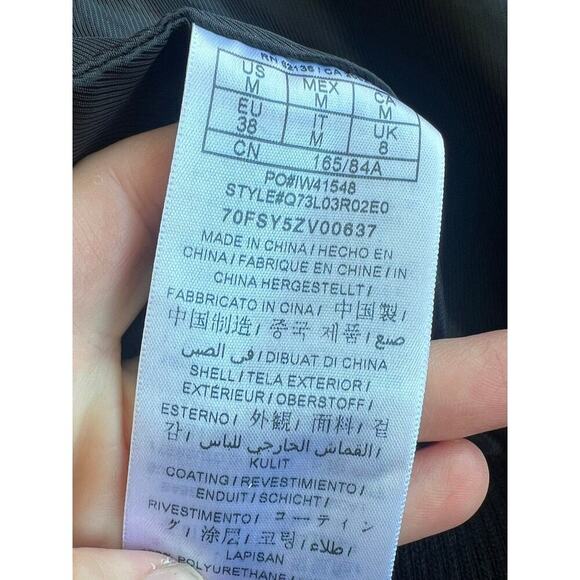 US MEX CA
M M M
EU IT UK
38 M 8
CN 165/84A
PO#IW41548
STYLE#Q73L03R02E0
70FSY5ZV00637
MADE IN CHINA / HECHO EN
CHINA / FABRIQUE EN CHINE / IN
CHINA HERGESTELLT /
FABBRICATO IN CINA / 中国製 /
中国制造 / 중국 제품 / صنع
في الصين / DIBUAT DI CHINA
SHELL / TELA EXTERIOR /
EXTÉRIEUR / OBERSTOFF /
ESTERNO / 外観 / 面料 / 겉
감 / القماش الخارجي للباس /
KULIT
COATING / REVESTIMIENTO /
ENDUIT / SCHICHT /
RIVESTIMENTO / コーティン
グ / 涂层 / 코팅 / طلاء /
LAPISAN
POLYURETHANE /